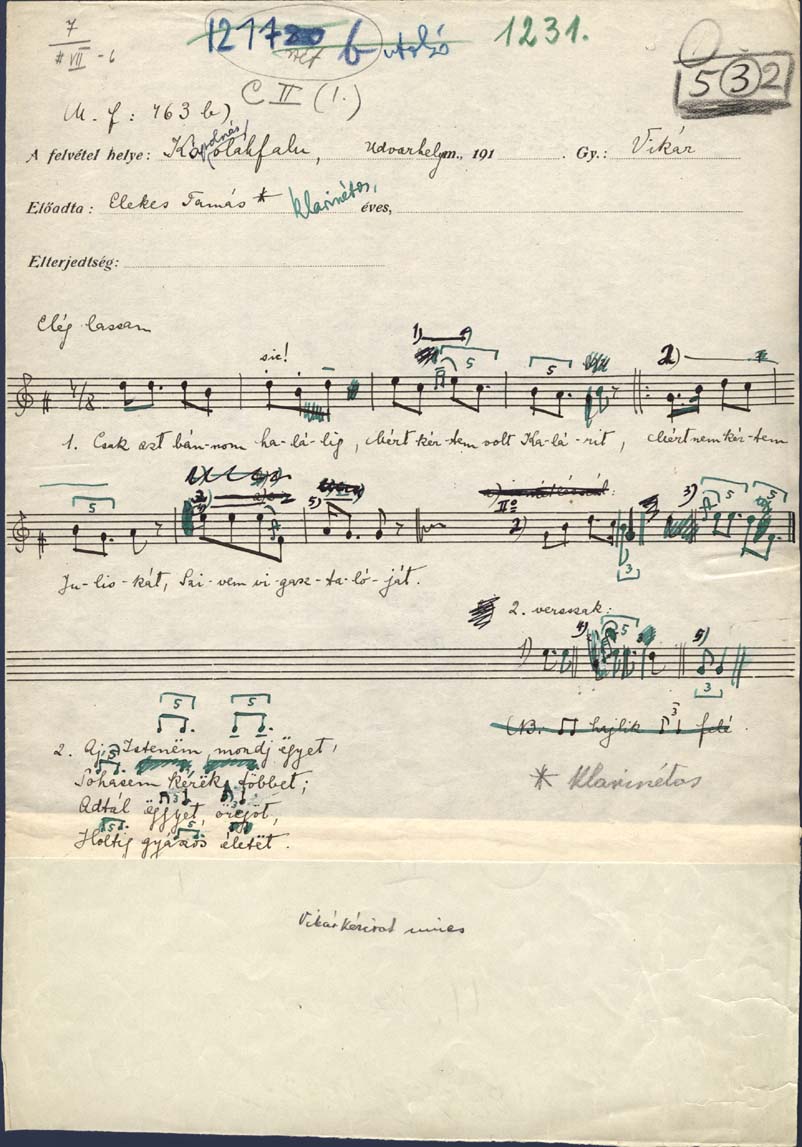 7
# VII - 6
1231.
b utolsó
5 3 2
C II (1.)
M. f: 463 b)
A felvétel helye: Kápolnásoláhfalu, Udvarhely m., 191 . Gy.: Vikár
Előadta: Elekes Tamás * klarinétos, éves,
Elterjedtség:
Elég lassan
sic!
1)
5
5
2)
7/8
1. Csak azt bán-nom ha-lá-lig, Mért kér-tem volt Ka-lá-rit, Mért nem kér-tem
5
5)
IIº
2)
3)
5
5
3
Ju-lis-kát, Szi-vem vi-gasz-ta-ló-ját.
2. versszak:
1)
4)
5
5)
3
NB. hajlik felé
* klarinétos
5
5
2. Aj, Istenëm, mondj ëgyet,
5
Sohasem kérëk többet;
3
3
Adtál ëggyet, örëgöt,
5
5
Holtig gyászos életët.
Vikár kézirat nincs